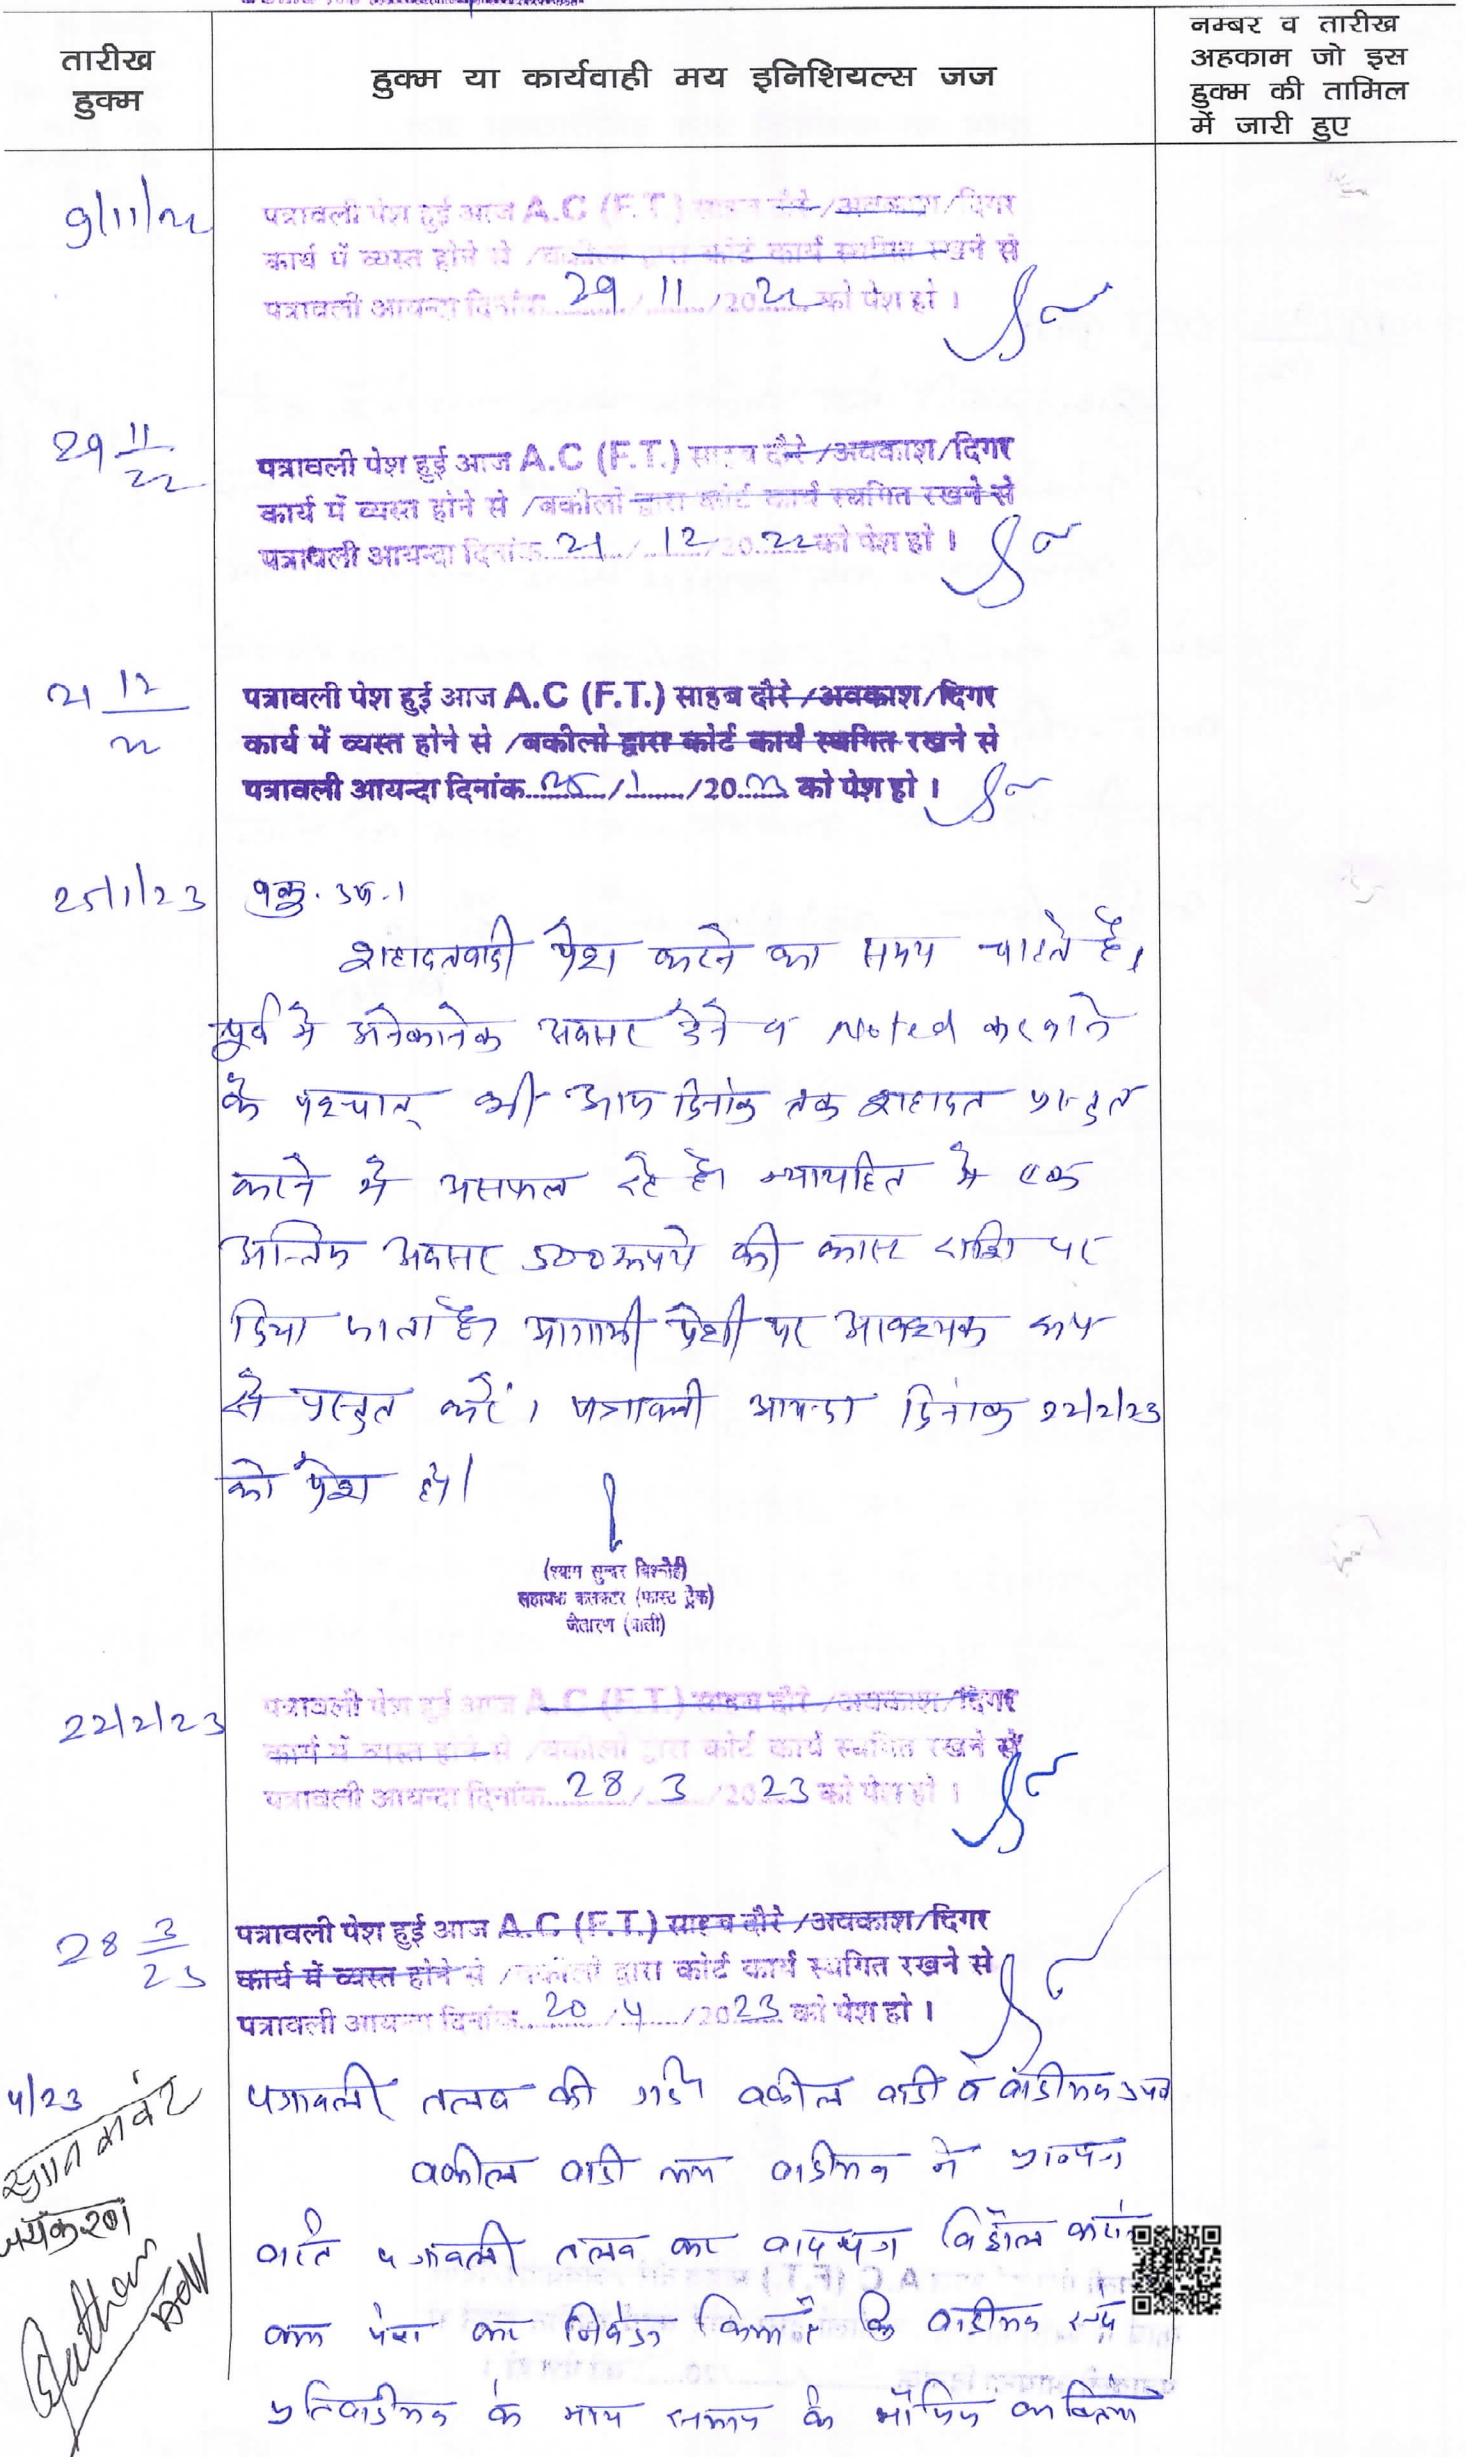 तारीख
हुक्म
हुक्म या कार्यवाही मय इनिशियल्स जज
नम्बर व तारीख
अहकाम जो इस
हुक्म की तामिल
में जारी हुए
9/11/22
पत्रावली पेश हुई आज A.C (F.T.) साहब दौरे /अवकाश/दिगर
कार्य में व्यस्त होने से /वकीलो द्वारा कोर्ट कार्य स्थगित रखने से
पत्रावली आयन्दा दिनांक 29/11/2022 को पेश हो ।
29 11/22
पत्रावली पेश हुई आज A.C (F.T.) साहब दौरे /अवकाश/दिगर
कार्य में व्यस्त होने से /वकीलो द्वारा कोर्ट कार्य स्थगित रखने से
पत्रावली आयन्दा दिनांक 21/12/2022 को पेश हो ।
21 12/22
पत्रावली पेश हुई आज A.C (F.T.) साहब दौरे /अवकाश/दिगर
कार्य में व्यस्त होने से /वकीलो द्वारा कोर्ट कार्य स्थगित रखने से
पत्रावली आयन्दा दिनांक 25/1/2023 को पेश हो ।
25/1/23
शहादतवादी पेश करने का समय चाहते है।
पूर्व मे अनेकानेक अवसर देने व Noted करवाने
के पश्चात् भी आज दिनांक तक शहादत प्रस्तुत
करने मे असफल रहे है। न्यायहित मे एक
अन्तिम अवसर 500 रूपये की कास्ट राशि पर
दिया जाता है। आगामी पेशी पर आवश्यक रूप
से प्रस्तुत करें। पत्रावली आयन्दा दिनांक 22/2/23
को पेश हो।
(श्याम सुन्दर बिश्नोई)
सहायक कलक्टर (फास्ट ट्रेक)
जैतारण (पाली)
22/2/23
पत्रावली पेश हुई आज A.C (F.T.) साहब दौरे /अवकाश/दिगर
कार्य में व्यस्त होने से /वकीलो द्वारा कोर्ट कार्य स्थगित रखने से
पत्रावली आयन्दा दिनांक 28/3/2023 को पेश हो ।
28 3/23
पत्रावली पेश हुई आज A.C (F.T.) साहब दौरे /अवकाश/दिगर
कार्य में व्यस्त होने से /वकीलो द्वारा कोर्ट कार्य स्थगित रखने से
पत्रावली आयन्दा दिनांक 20/4/2023 को पेश हो ।
4/23
पत्रावली तलब की गई। वकील वादी व वादीगण
वकील वादी मय वादीगण ने
वास्ते पत्रावली तलब कर वादपत्र विड्रोल
पेश कर निवेदन किया है कि वादीगण
प्रतिवादीगण के साथ समाज के